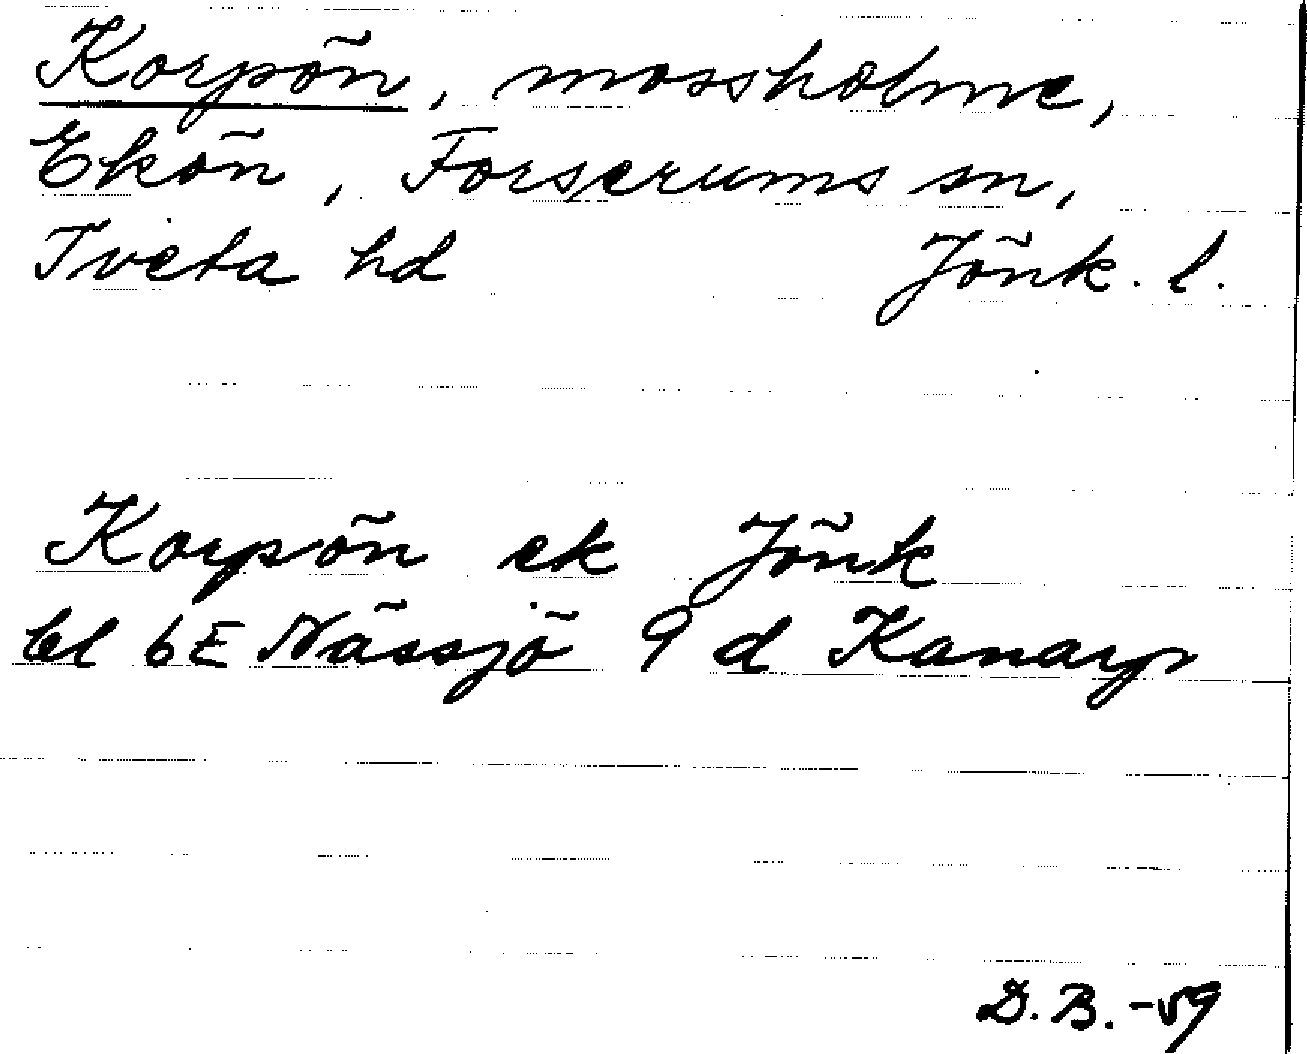 Korpön, mossholme,
Ekön, Forserums sn,
Tveta hd Jönk. l.
Korpön ek Jönk
bl 6E Nässjö 9 d Kanarp
D.B. -59